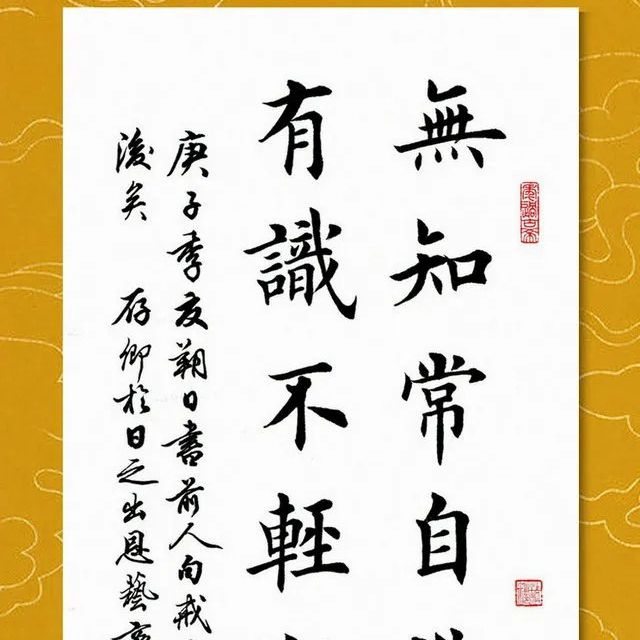 無知常自
有識不輕
庚子季夏朔日書前人句戒
後矣 存卿於日之出恩藝